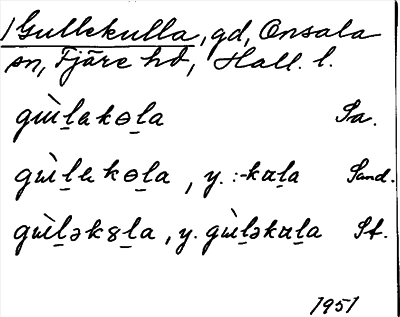 1 Gullekulla, gd, Onsala
sn, Fjäre hd, Hall. l.
gɯ̀l̲ekɵl̲a Sa.
gɯ̀l̲ekɵl̲a, y. :-kɑl̲a Sand.
gɯ̀l̲ək8l̲a, y. gɯ̀l̲əkɑl̲a St.
1951